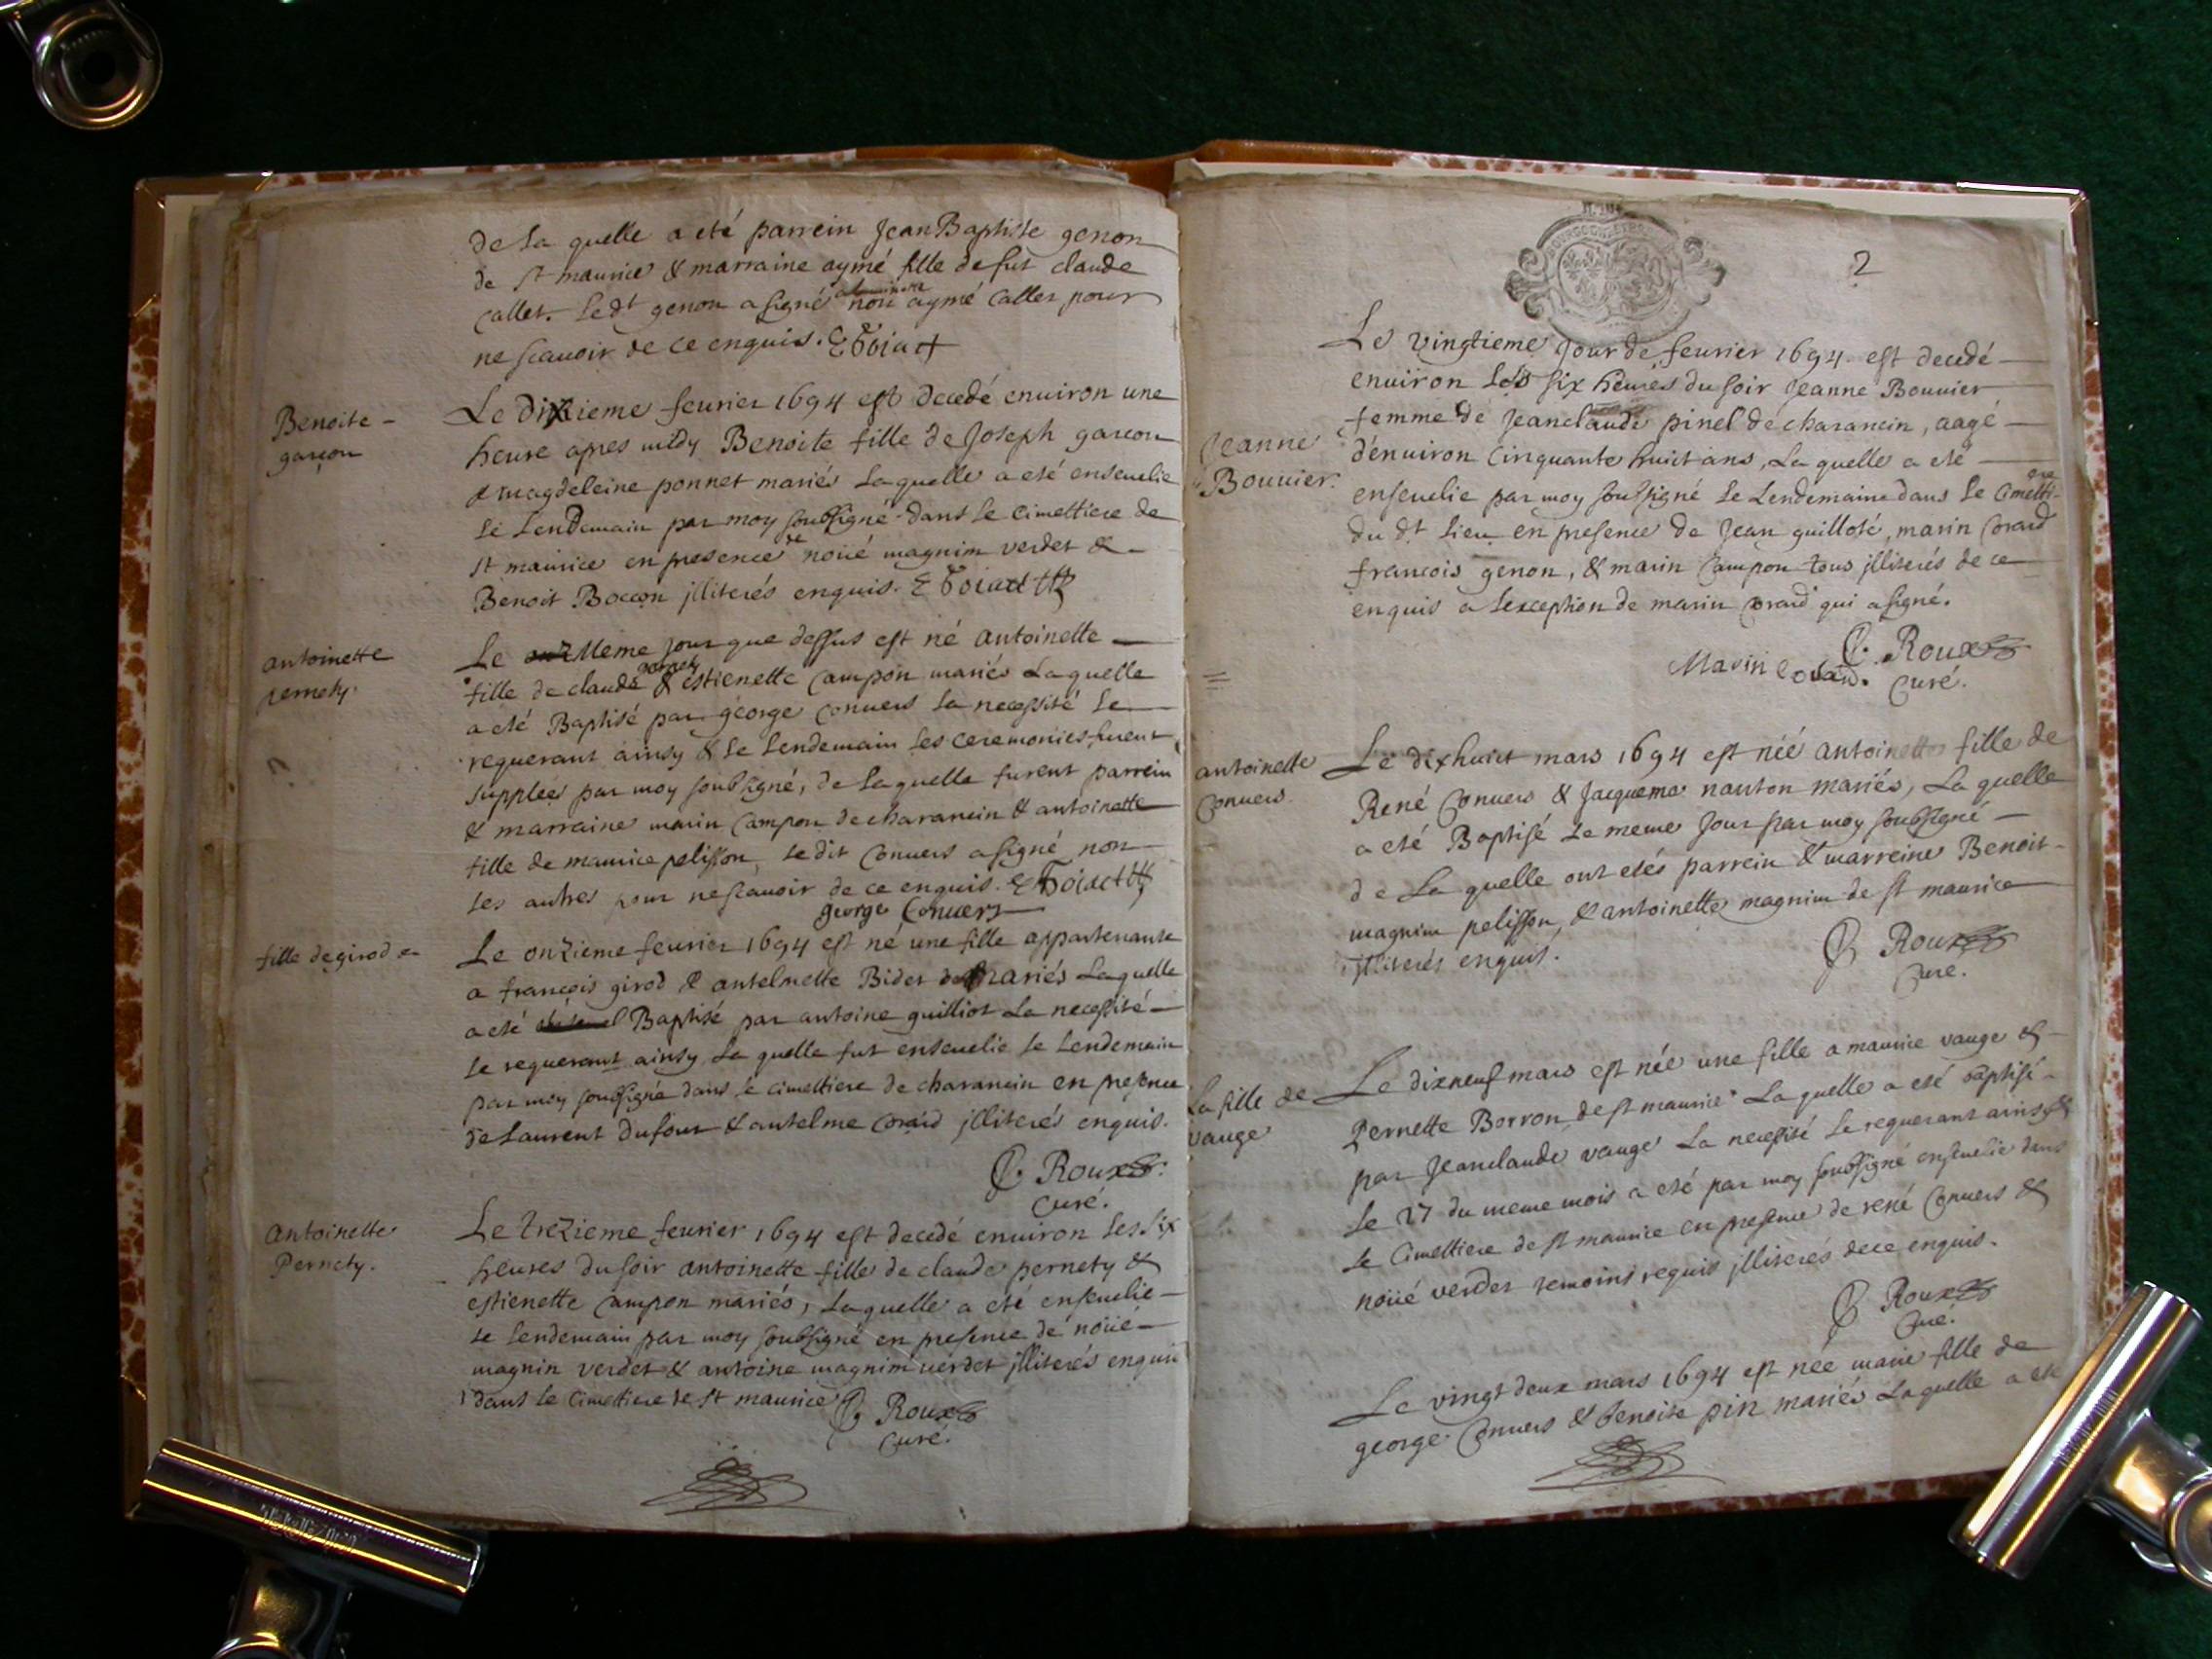 de la quelle a eté parrein Jean Baptiste genon
de st maurice & marraine aymé fille de fut claude
callet. Ledt genon a signé non aymé callet pour
ne scauoir de ce enquis.
Benoite
garçon
Le dixieme feurier 1694 est decedé enuiron une
heure apres midy Benoite fille de Joseph garcon
& magdeleine ponnet mariés Laquelle a eté enseuelie
le Lendemain par moy soubsigné dans le cimettiere de
st maurice en presence de noüé magnim verdet &
Benoit Boccon jlliterés enquis.
antoinette
pernety.
Le meme jour que dessus est né antoinette
fille de claude pernety & estienette campon mariés Laquelle
a eté Baptisé par george conuers la necessité le
requerant ainsy & le lendemain les ceremonies furent
supplées par moy soubsigné, de laquelle furent parrein
& marraine marin campon de charancin & antoinette
fille de maurice pelisson, ledit conuers a signé non
les autres pour ne scauoir de ce enquis.
george Conuers
fille de girod
Le onzieme feurier 1694 est né une fille appartenante
a francois girod & antelmette Bidet mariés Laquelle
a eté Baptisé par antoine guilliot La necessité
le requerant ainsy La quelle fut enseuelie le Lendemain
par moy soubsigné dans le cimettiere de charancin en presence
de Laurent dufour & antelme corard jlliterés enquis.
C. Roux
Curé.
Antoinette
Pernety.
Le trezieme feurier 1694 est decedé enuiron les six
heures du soir antoinette fille de claude pernety &
estienette campon mariés, Laquelle a eté enseuelie
le lendemain par moy soubsigné en presence de noüé
magnin verdet & antoine magnim verdet jlliterés enquis
dans le cimettiere de st maurice
C. Roux
Curé.
2
Jeanne
Bouuier.
Le vingtieme Jour de feurier 1694 est decedé
enuiron les six heures du soir Jeanne Bouuier
femme de Jeanclaude pinel de charancin, aagé
d'enuiron cinquante huict ans, La quelle a eté
enseuelie par moy soubsigné le Lendemain dans le cimettiere
du dt lieu en presence de Jean guilloté, marin corard
francois genon, & marin campon tous jlliterés de ce
enquis a lexception de marin corard qui a signé.
C. Roux
Marin Corard. Curé.
antoinette
Conuers.
Le dixhuict mars 1694 est néé antoinette fille de
René Conuers & Jacqueme nanton mariés, La quelle
a eté Baptisé Le meme Jour par moy soubsigné
de La quelle ont etés parrein & marreine Benoit
magnim pelisson, & antoinette magnim de st maurice
jlliterés enquis.
C. Roux
Curé.
La fille de
vauge
Le dixneuf mars est née une fille a maurice vauge &
Pernette Borron de st maurice La quelle a eté baptisé
par Jeanclaude vauge La necessité Le requerant ainsy &
le 27 du meme mois a eté par moy soubsigné enseuelie dans
le Cimettiere de st maurice en presence de rené Conuers &
noüé verdet temoins requis jlliterés de ce enquis.
C. Roux
Curé.
Le vingt deux mars 1694 est née marie fille de
george Conuers & benoite pin mariés Laquelle a eté